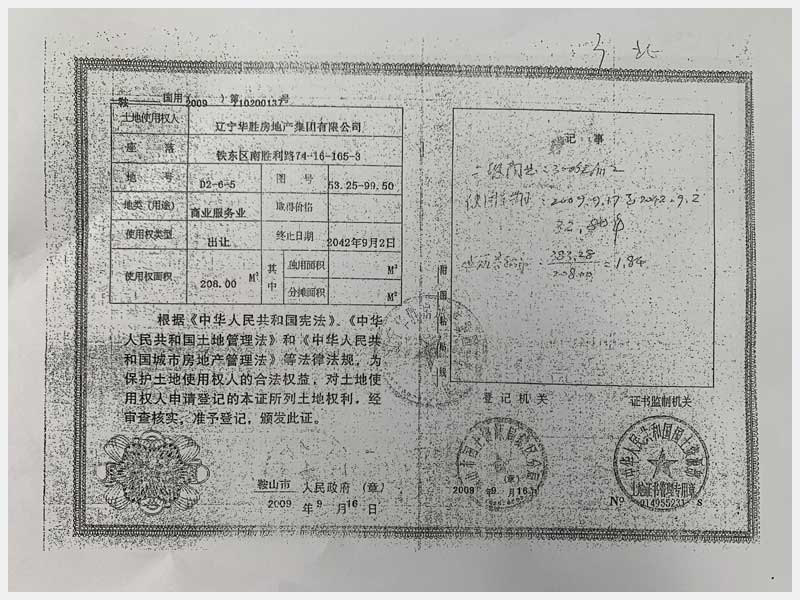 鞍 国用（2009）第10200137号
土地使用权人 辽宁华胜房地产集团有限公司
座 落 铁东区南胜利路74-16-165-3
地 号 D2-6-5 图 号 53.25-99.50
地类（用途） 商业服务业 取得价格
使用权类型 出让 终止日期 2042年9月2日
使用权面积 208.00 M² 其中 独用面积 M²
分摊面积 M²
根据《中华人民共和国宪法》、《中华
人民共和国土地管理法》和《中华人民共
和国城市房地产管理法》等法律法规，为
保护土地使用权人的合法权益，对土地使
用权人申请登记的本证所列土地权利，经
审查核实，准予登记，颁发此证。
鞍山市 人民政府（章）
2009 年 9 月 16 日
附图粘贴线
记 事
383.28
208.00
=1.84
登 记 机 关
（章）
2009 年 9 月 16 日
证书监制机关
中华人民共和国国土资源部
土地证书管理专用章
Nº 014955231 s